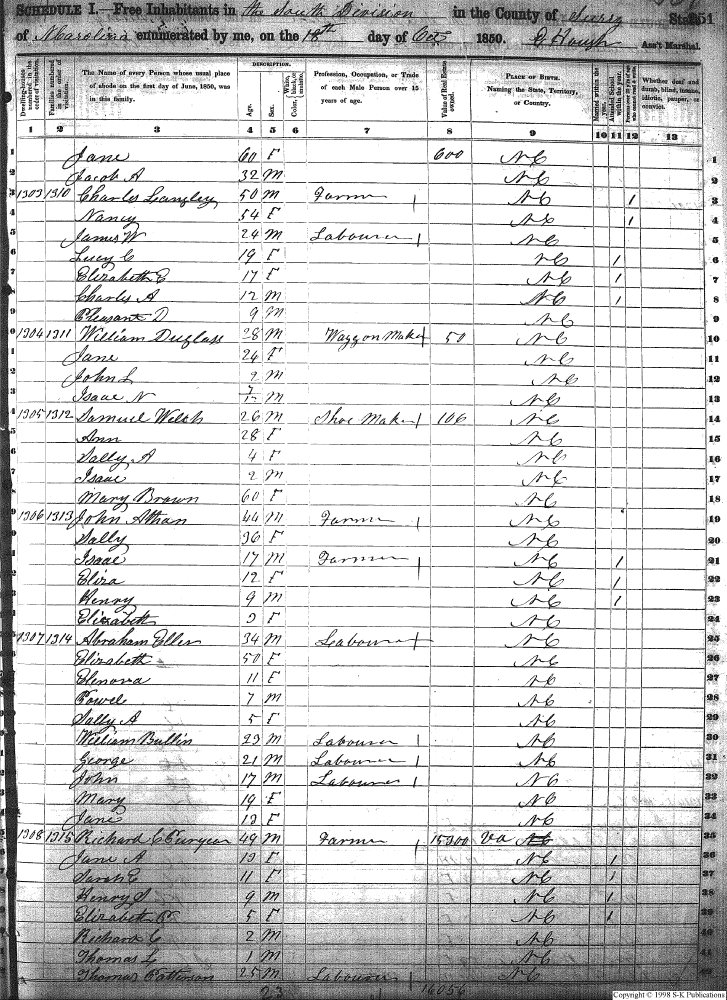 SCHEDULE I.—Free Inhabitants in the South Division in the County of Surry State 251
of N Carolina enumerated by me, on the 18th day of Oct 1850. Ass't Marshal.
Dwelling-houses numbered in the order of visitation.
Families numbered in the order of visitation.
The Name of every Person whose usual place of abode on the first day of June, 1850, was in this family.
DESCRIPTION.
Age.
Sex.
Color, White, black, or mulatto.
Profession, Occupation, or Trade of each Male Person over 15 years of age.
Value of Real Estate owned.
PLACE OF BIRTH. Naming the State, Territory, or Country.
Married within the year.
Attended School within the year.
Persons over 20 y'rs of age who cannot read & write.
Whether deaf and dumb, blind, insane, idiotic, pauper, or convict.
1 2 3 4 5 6 7 8 9 10 11 12 13
1 Jane 60 F 600 NC 1
2 Jacob A 32 M NC 2
3 1303 1310 Charles Langley 50 M Farmer NC 1 3
4 Nancy 54 F NC 1 4
5 James W 24 M Labourer NC 5
6 Lucy C 19 F NC 1 6
7 Elizabeth E 17 F NC 1 7
8 Charles A 12 M NC 1 8
9 Pleasant D 9 M NC 9
10 1304 1311 William Duglass 28 M Waggon Maker 50 NC 10
11 Jane 24 F NC 11
12 John L 2 M NC 12
13 Isaac N M NC 13
14 1305 1312 Samuel Welch 26 M Shoe Maker 106 NC 14
15 Ann 28 F NC 15
16 Sally A 4 F NC 16
17 Isaac 2 M NC 17
18 Mary Brown 60 F NC 18
19 1306 1313 John Athan 44 M Farmer NC 19
20 Sally 36 F NC 20
21 Isaac 17 M Farmer NC 1 21
22 Eliza 12 F NC 1 22
23 Henry 9 M NC 1 23
24 Elizabeth F NC 24
25 1307 1314 Abraham Eller 34 M Labourer NC 25
26 Elizabeth 50 F NC 26
27 Elenora 11 F NC 27
28 Powel 7 M NC 28
29 Sally A 5 F NC 29
30 William Bullin 23 M Labourer NC 30
31 George 21 M Labourer NC 31
32 John 17 M Labourer NC 32
33 Mary 19 F NC 33
34 Jane 13 F NC 34
35 1308 1315 Richard C Puryear 49 M Farmer 15300 Va NC 35
36 Jane A 13 F NC 1 36
37 Sarah E 11 F NC 1 37
38 Henry S 9 M NC 1 38
39 Elizabeth 5 F NC 1 39
40 Richard C 2 M NC 40
41 Thomas L 1 M NC 41
42 Thomas Patterson 25 M Labourer NC 42
23 16056
Copyright © 1998 S-K Publications